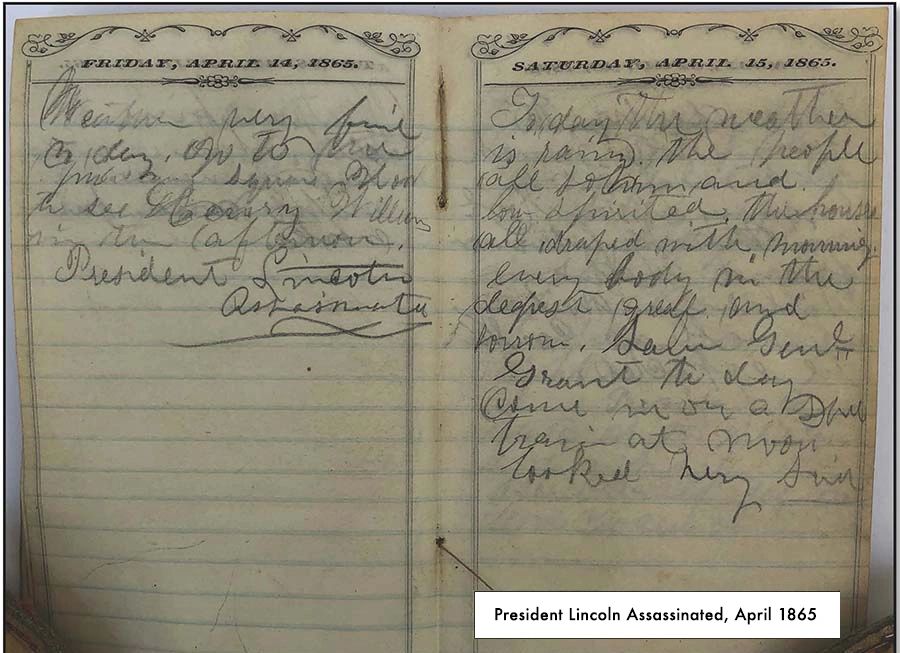 FRIDAY, APRIL 14, 1865.
Weather very fine
to day. on to the
square
to see Henry William
in the afternoon.
President Lincoln
Assasinated
SATURDAY, APRIL 15, 1865.
To day the weather
is rainy. the people
all solomn and
low spirited. the houses
all draped with morning.
every body in the
deepest greef and
sorrow. Saw Genl
Grant to day
Come in on a Spel
train at Noon
looked very Sad
President Lincoln Assassinated, April 1865